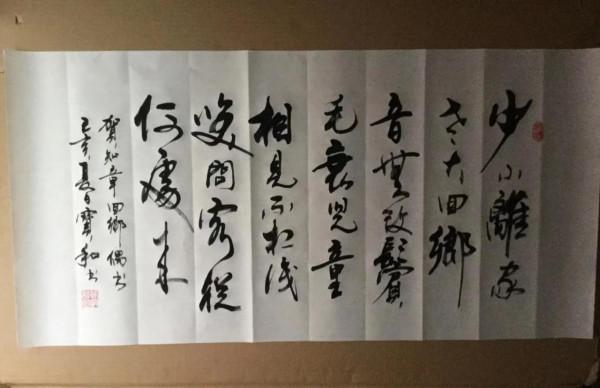 少小離家
老大回鄉
音無改鬢
毛衰兒童
相見不相識
咲問客從
何處來
賀知章回鄉偶书
己亥夏日寶和书